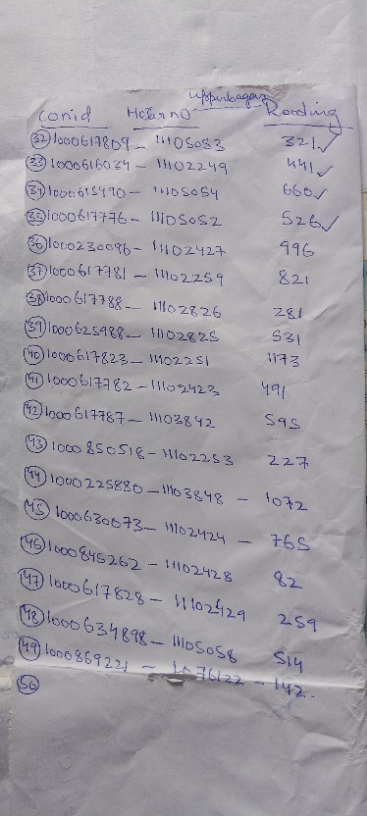 Upperbagar
Con id Meter no Reading
32 1000617809 – 11105053 321 ✓
33 1000616034 – 11102249 441 ✓
34 1000615490 – 11105054 660 ✓
35 1000617776 – 11105052 526 ✓
36 1000230096 – 11102427 996
37 1000617781 – 11102259 821
38 1000617788 – 11102826 281
39 1000625988 – 11102825 531
40 1000617823 – 11102251 1173
41 1000617782 – 11102423 491
42 1000617787 – 11103842 595
43 1000850518 – 11102253 227
44 1000225880 – 11103848 – 1072
45 1000630073 – 11102424 – 765
46 1000845262 – 11102428 82
47 1000617828 – 11102429 259
48 1000634898 – 11105058 514
49 1000869221 – – 142.
50